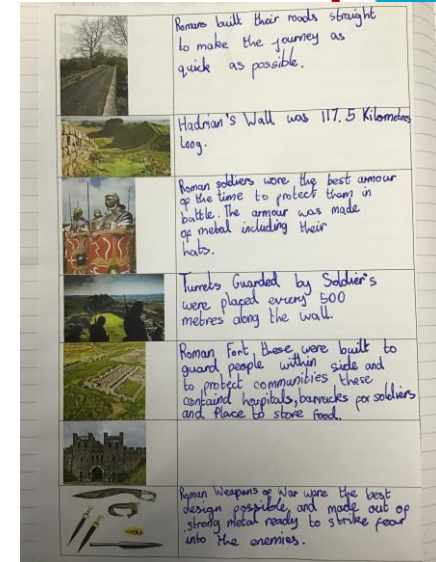 Romans built their roads straight
to make the journey as
quick as possible.
Hadrian's Wall was 117.5 Kilometres
long.
Roman soldiers wore the best armour
of the time to protect them in
battle. The armour was made
of metal including their
hats.
Turrets Guarded by Soldier's
were placed every 500
metres along the wall.
Roman Fort, these were built to
guard people within side and
to protect communities these
containd hospitals, barracks for soldiers
and Place to store food.
Roman Weapons of War were the best
design possible, and made out of
strong metal ready to strike fear
into the enemies.